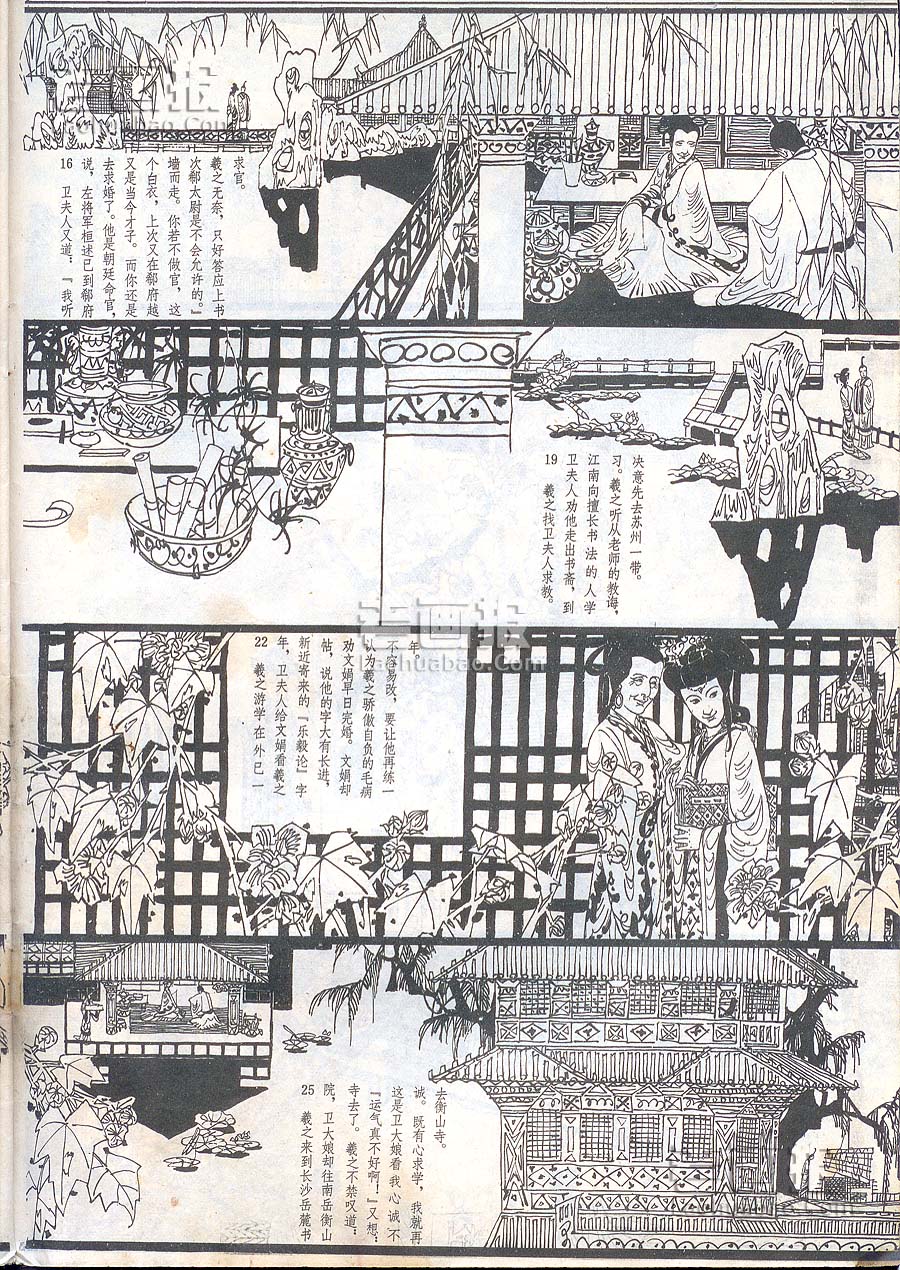 老画报
laohuabao.Com
16 卫夫人又道:『我听
说,左将军桓述已到郗府
去求婚了。他是朝廷命官,
又是当今才子。而你还是
个白衣,上次又在郗府越
墙而走。你若不做官,这
次郗太尉是不会允许的。』
羲之无奈,只好答应上书
求官。
19 羲之找卫夫人求教。
卫夫人劝他走出书斋,到
江南向擅长书法的人学
习。羲之听从老师的教诲,
决意先去苏州一带。
老画报
laohuabao.Com
22 羲之游学在外已一
年,卫夫人给文娟看羲之
新近寄来的『乐毅论』字
帖,说他的字大有长进,
劝文娟早日完婚。文娟却
认为羲之骄傲自负的毛病
不容易改,要让他再练一
年。
25 羲之来到长沙岳麓书
院,卫大娘却往南岳衡山
寺去了。羲之不禁叹道:
『运气真不好啊!』又想:
这是卫大娘看我心诚不
诚。既有心求学,我就再
去衡山寺。